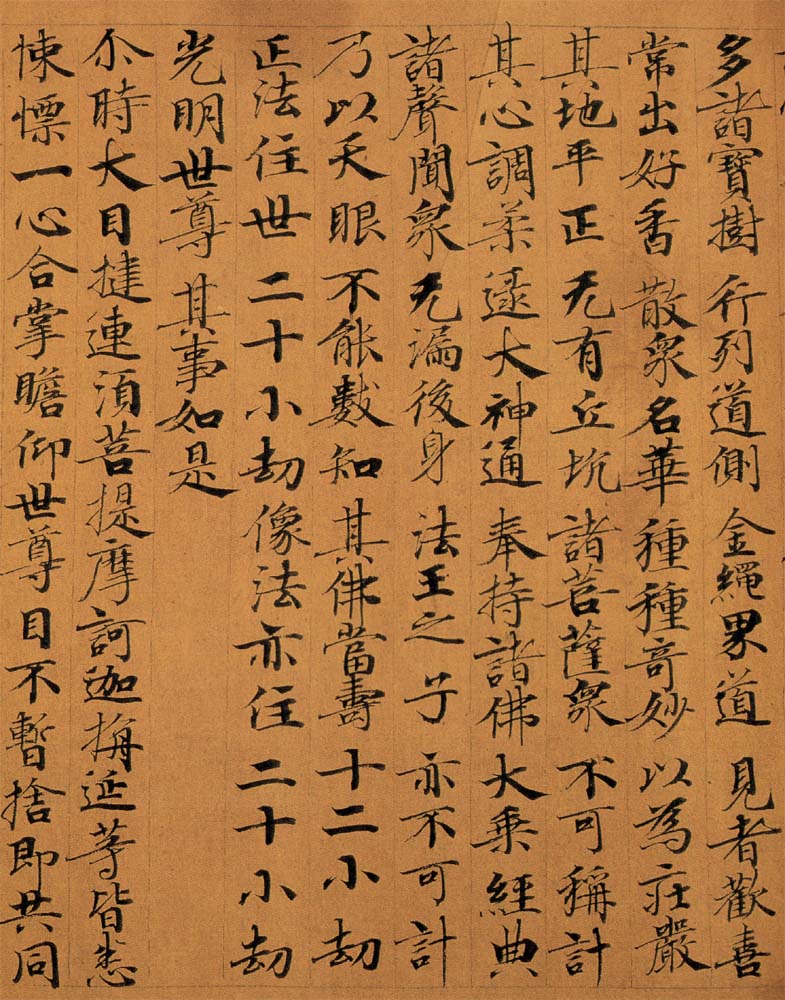 多諸寶樹行列道側金繩界道見者歡喜
常出好香散衆名華種種奇妙以為莊嚴
其地平正无有丘坑諸菩薩衆不可稱計
其心調柔逮大神通奉持諸佛大乘經典
諸聲聞衆无漏後身法王之子亦不可計
乃以天眼不能數知其佛當壽十二小劫
正法住世二十小劫像法亦住二十小劫
光明世尊其事如是
尒時大目揵連須菩提摩訶迦旃延等皆悉
悚慄一心合掌瞻仰世尊目不暫捨即共同